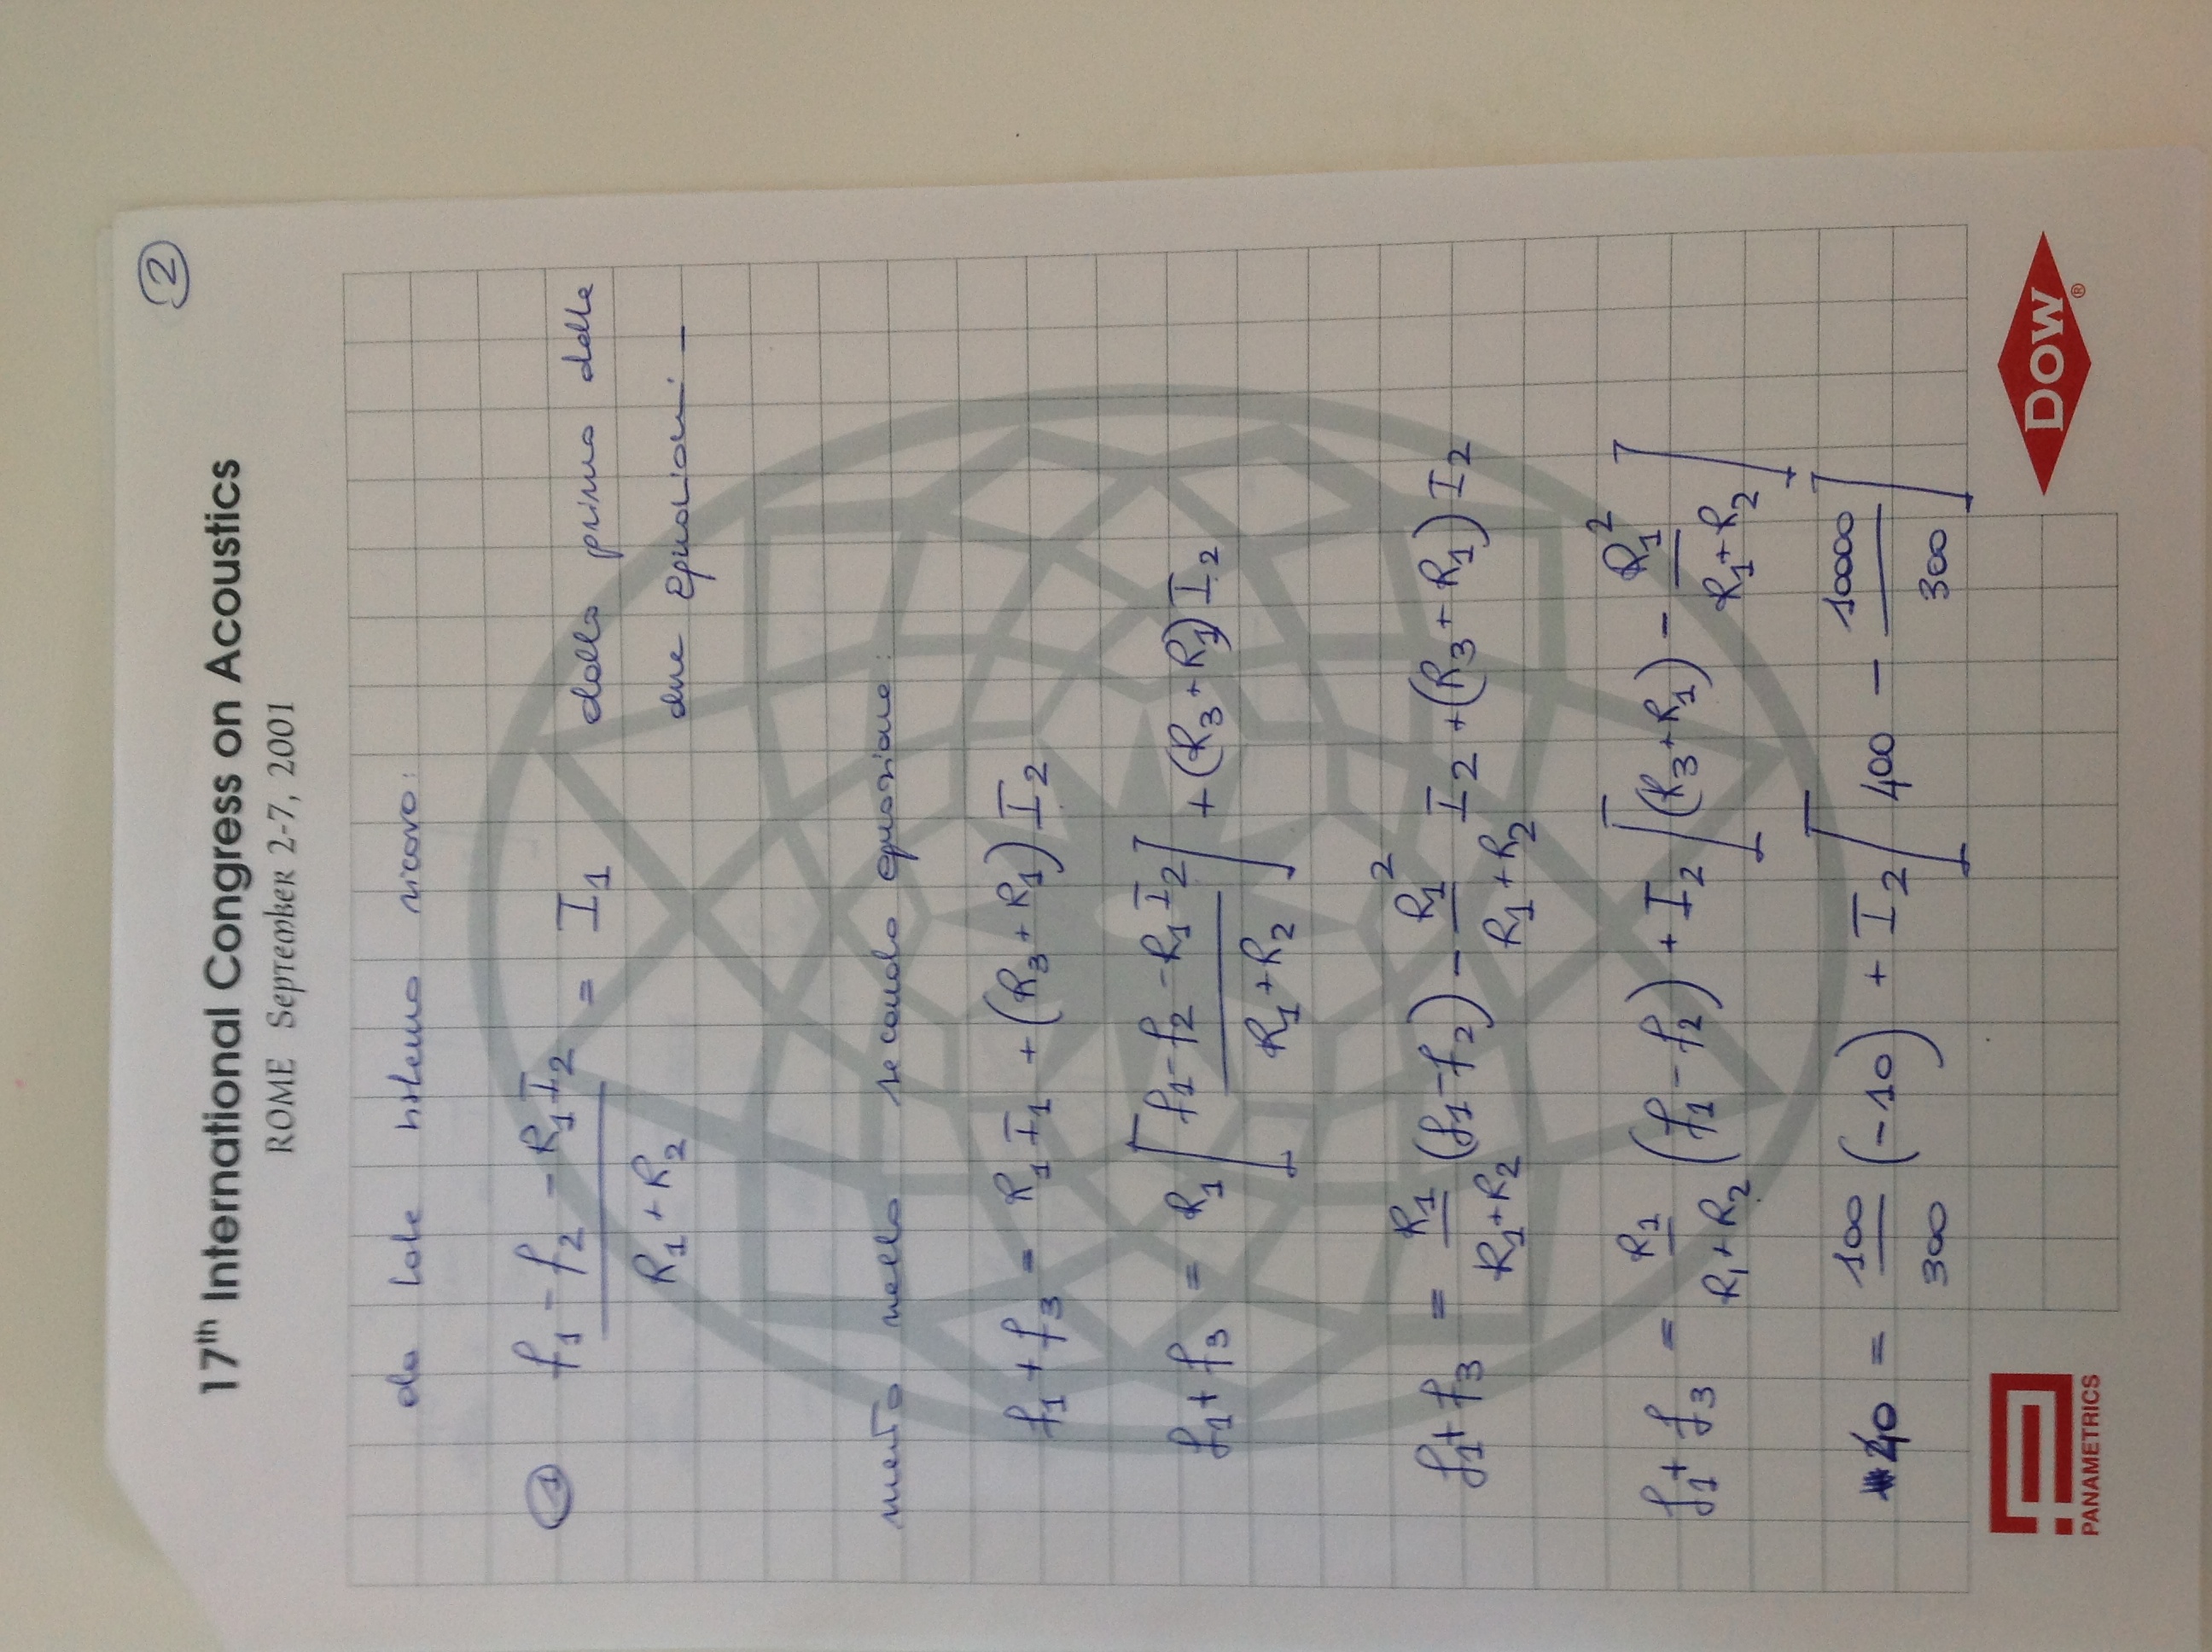 ②
17th International Congress on Acoustics
ROME September 2-7, 2001
da tale sistema ricavo:
① (f₁ - f₂ - R₁I₂) / (R₁ + R₂) = I₁ dalla prima delle
due equazioni -
metto nella seconda equazione:
f₁ + f₃ = R₁ I₁ + (R₃ + R₁) I₂
f₁ + f₃ = R₁ [(f₁ - f₂ - R₁ I₂) / (R₁ + R₂)] + (R₃ + R₁) I₂
f₁ + f₃ = R₁ / (R₁ + R₂) (f₁ - f₂) - R₁² / (R₁ + R₂) I₂ + (R₃ + R₁) I₂
f₁ + f₃ = R₁ / (R₁ + R₂) (f₁ - f₂) + I₂ [(R₃ + R₁) - R₁² / (R₁ + R₂)]
= 100 / 300 (-10) + I₂ [400 - 10000 / 300]
PANAMETRICS
DOW ®